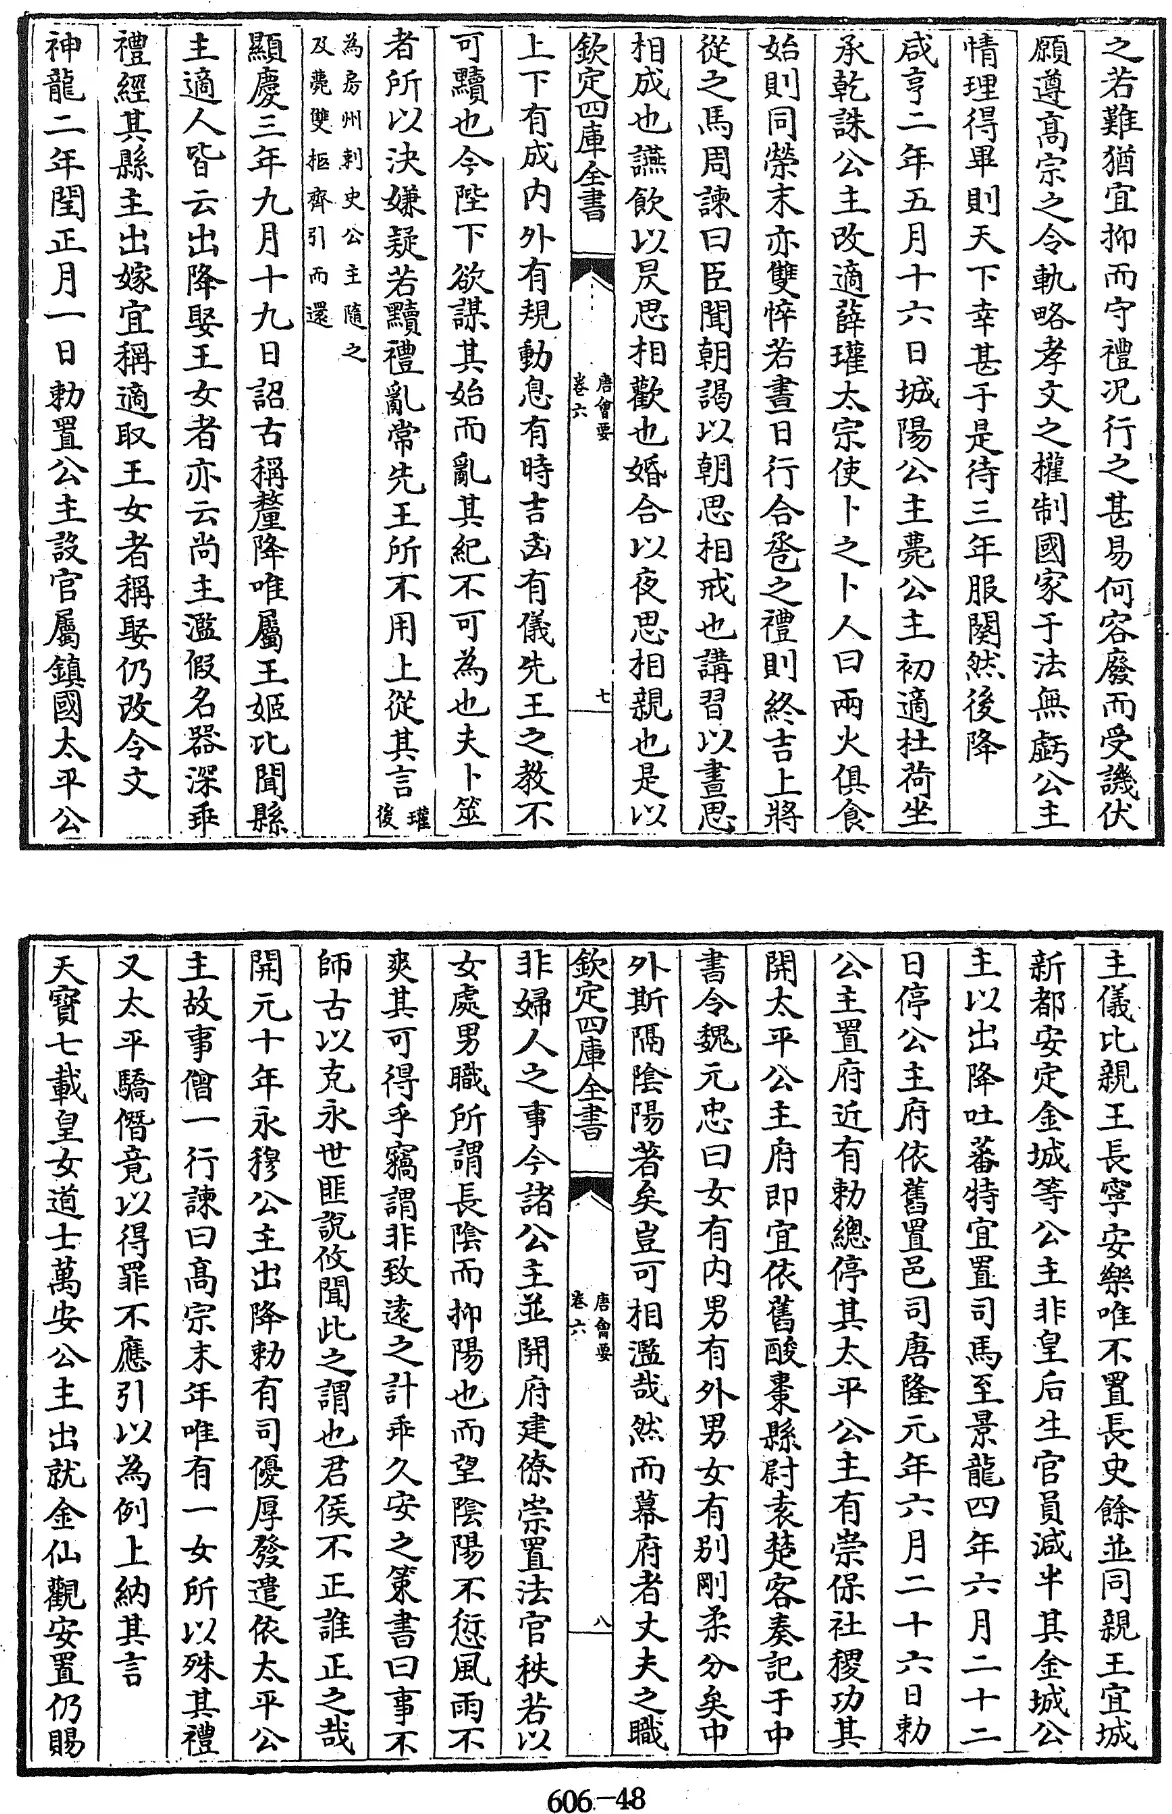 之若難猶宜抑而守禮况行之甚易何容廢而受譏伏
願遵髙宗之令軌略孝文之權制國家于法無虧公主
情理得畢則天下幸甚于是待三年服闋然後降
咸亨二年五月十六日城陽公主薨公主初適杜荷坐
承乾誅公主改適薛瓘太宗使卜之卜人曰兩火俱食
始則同榮末亦雙悴若晝日行合卺之禮則終吉上將
從之馬周諫曰臣聞朝謁以朝思相戒也講習以晝思
相成也讌飲以昃思相歡也婚合以夜思相親也是以
欽定四庫全書
唐會要
卷六
七
上下有成内外有規動息有時吉凶有儀先王之教不
可黷也今陛下欲謀其始而亂其紀不可為也夫卜筮
者所以決嫌疑若黷禮亂常先王所不用上從其言瓘後
為房州刺史公主隨之
及薨雙柩齊引而還
顯慶三年九月十九日詔古稱釐降唯屬王姬比聞縣
主適人皆云出降娶王女者亦云尚主濫假名器深乖
禮經其縣主出嫁宜稱適取王女者稱娶仍改令文
神龍二年閏正月一日勅置公主設官屬鎮國太平公
主儀比親王長寧安樂唯不置長史餘並同親王宜城
新都安定金城等公主非皇后生官員減半其金城公
主以出降吐蕃特宜置司馬至景龍四年六月二十二
日停公主府依舊置邑司唐隆元年六月二十六日勅
公主置府近有勅總停其太平公主有崇保社稷功其
開太平公主府即宜依舊酸棗縣尉袁楚客奏記于中
書令魏元忠曰女有内男有外男女有别剛柔分矣中
外斯隔陰陽著矣豈可相濫哉然而幕府者丈夫之職
欽定四庫全書
唐會要
卷六
八
非婦人之事今諸公主並開府建僚崇置法官秩若以
女處男職所謂長陰而抑陽也而望陰陽不愆風雨不
爽其可得乎竊謂非致逺之計乖久安之策書曰事不
師古以克永世匪說攸聞此之謂也君侯不正誰正之哉
開元十年永穆公主出降勅有司優厚發遣依太平公
主故事僧一行諫曰髙宗末年唯有一女所以殊其禮
又太平驕僭竟以得罪不應引以為例上納其言
天寶七載皇女道士萬安公主出就金仙觀安置仍賜
606-48